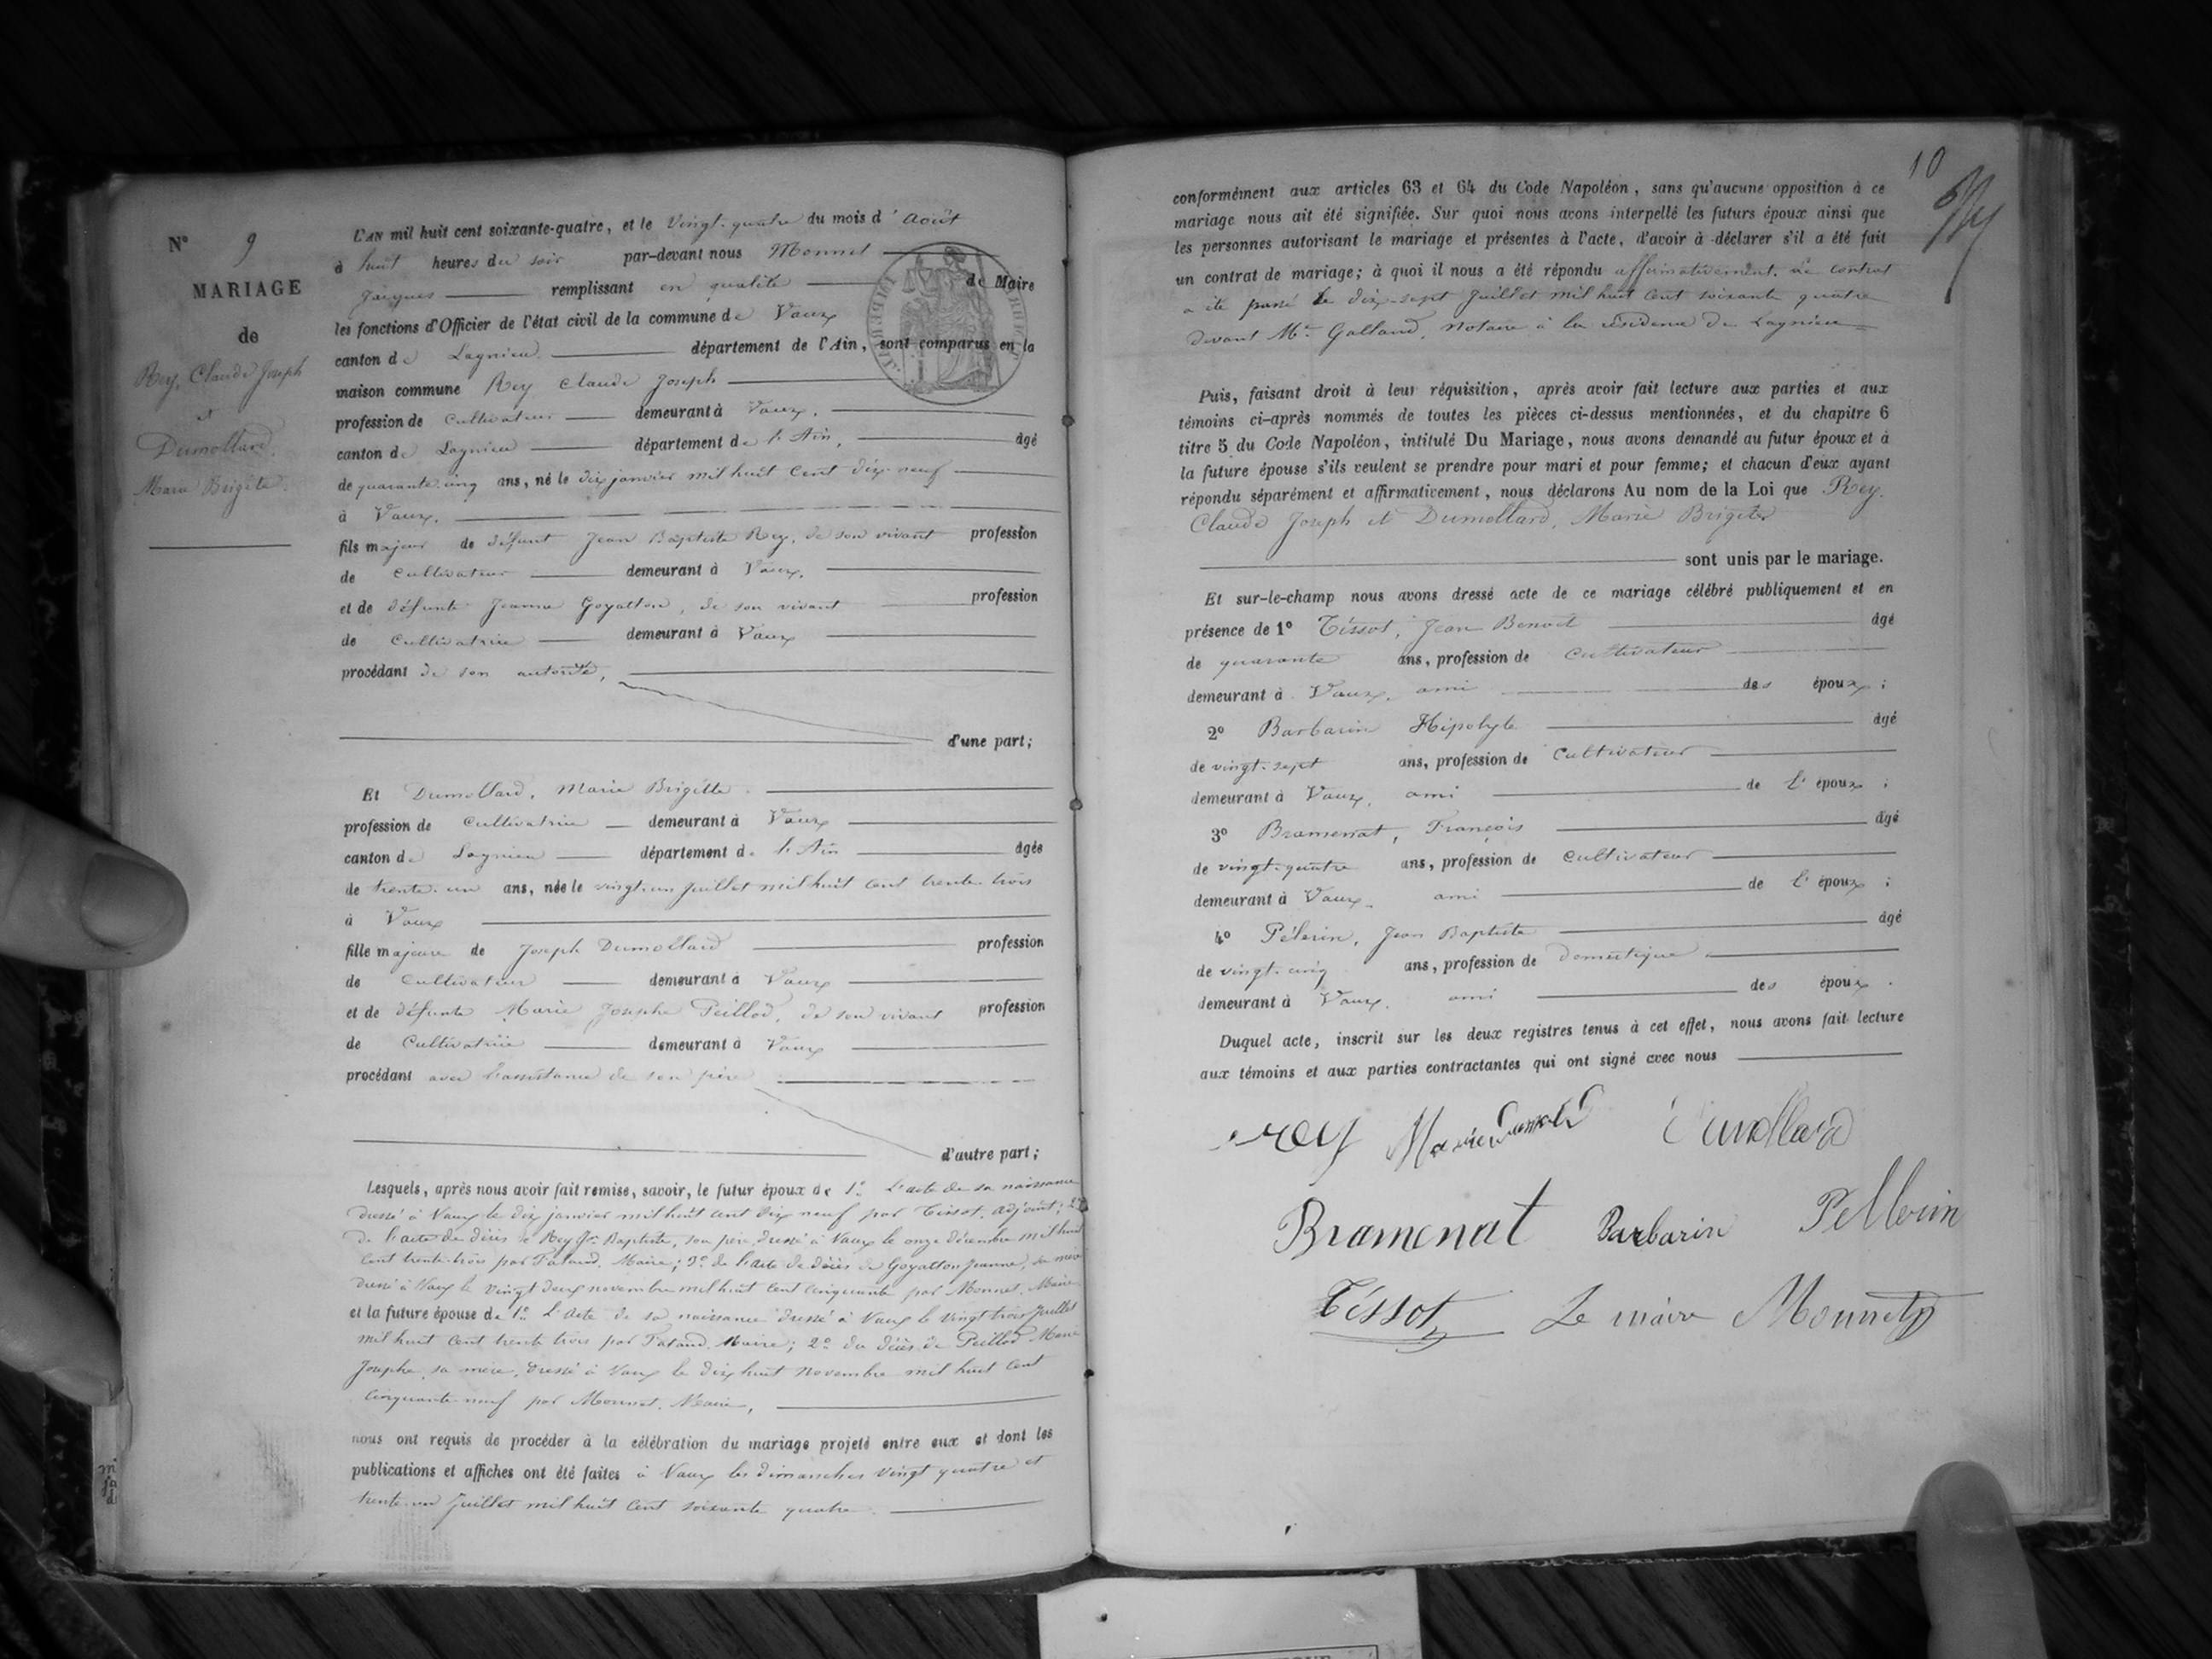 N° 9
MARIAGE
de
Rey, Claude Joseph
et
Dumollard,
Marie Brigitte.
L'AN mil huit cent soixante-quatre, et le Vingt-quatre du mois d'Août
à huit heures du soir par-devant nous Monnet
Jacques remplissant en qualité de Maire
les fonctions d'Officier de l'état civil de la commune de Vaux
canton de Lagnieu département de l'Ain, sont comparus en la
maison commune Rey Claude Joseph
profession de Cultivateur demeurant à Vaux,
canton de Lagnieu département de l'Ain, âgé
de quarante-cinq ans, né le dix janvier mil huit cent dix-neuf
à Vaux,
fils majeur de défunt Jean Baptiste Rey, de son vivant profession
de Cultivateur demeurant à Vaux,
et de défunte Jeanne Goyatton, de son vivant profession
de Cultivatrice demeurant à Vaux
procédant de son autorité,
d'une part;
Et Dumollard, Marie Brigitte.
profession de Cultivatrice demeurant à Vaux
canton de Lagnieu département de l'Ain âgée
de trente-un ans, née le vingt-un Juillet mil huit cent trente-trois
à Vaux
fille majeure de Joseph Dumollard profession
de Cultivateur demeurant à Vaux
et de défunte Marie Josephe Peillod, de son vivant profession
de Cultivatrice demeurant à Vaux
procédant avec l'assistance de son père
d'autre part;
Lesquels, après nous avoir fait remise, savoir, le futur époux de 1° L'acte de sa naissance
dressé à Vaux le dix janvier mil huit cent dix neuf par Tissot, adjoint; 2°
de l'acte de décès de Rey Jn Baptiste, son père, dressé à Vaux le onze décembre mil huit
cent trente-trois par Tataud, Maire; 3° de l'acte de décès de Goyatton Jeanne, sa mère
dressé à Vaux le vingt deux novembre mil huit cent cinquante par Monnet, Maire
et la future épouse de 1° L'acte de sa naissance dressé à Vaux le vingt trois Juillet
mil huit cent trente trois par Tataud, Maire; 2° du décès de Peillod Marie
Josephe, sa mère, dressé à Vaux le dix huit Novembre mil huit cent
cinquante-neuf par Monnet, Maire,
nous ont requis de procéder à la célébration du mariage projeté entre eux et dont les
publications et affiches ont été faites à Vaux les dimanches vingt quatre et
trente-un Juillet mil huit cent soixante quatre
10
conformément aux articles 63 et 64 du Code Napoléon, sans qu'aucune opposition à ce
mariage nous ait été signifiée. Sur quoi nous avons interpellé les futurs époux ainsi que
les personnes autorisant le mariage et présentes à l'acte, d'avoir à déclarer s'il a été fait
un contrat de mariage; à quoi il nous a été répondu affirmativement. Le contrat
a été passé le dix-sept Juillet mil huit cent soixante quatre
devant Me Galland, Notaire à la résidence de Lagnieu
Puis, faisant droit à leur réquisition, après avoir fait lecture aux parties et aux
témoins ci-après nommés de toutes les pièces ci-dessus mentionnées, et du chapitre 6
titre 5 du Code Napoléon, intitulé Du Mariage, nous avons demandé au futur époux et à
la future épouse s'ils veulent se prendre pour mari et pour femme; et chacun d'eux ayant
répondu séparément et affirmativement, nous déclarons Au nom de la Loi que Rey,
Claude Joseph et Dumollard, Marie Brigitte
sont unis par le mariage.
Et sur-le-champ nous avons dressé acte de ce mariage célébré publiquement et en
présence de 1° Tissot, Jean Benoit âgé
de quarante ans, profession de Cultivateur
demeurant à Vaux, ami des époux;
2° Barbarin Hipolyte âgé
de vingt-sept ans, profession de Cultivateur
demeurant à Vaux, ami de l'époux;
3° Bramenat, François âgé
de vingt-quatre ans, profession de Cultivateur
demeurant à Vaux, ami de l'époux;
4° Pélerin, Jean Baptiste âgé
de vingt-cinq ans, profession de Domestique
demeurant à Vaux, ami des époux.
Duquel acte, inscrit sur les deux registres tenus à cet effet, nous avons fait lecture
aux témoins et aux parties contractantes qui ont signé avec nous
rey Marie Dumollard Dumollard
Bramenat Barbarin Pellerin
Tissot Le maire Monnet